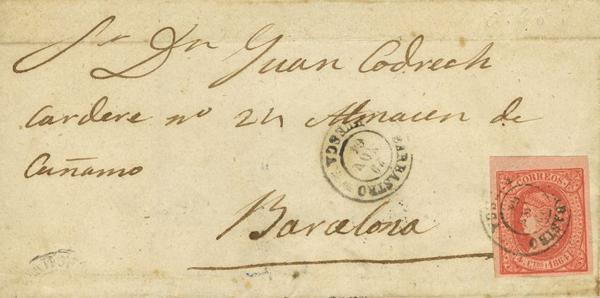 Sr Dn Juan Codrech
Cardere nº 24 Almacen de
Cañamo
Barcelona
BARBASTRO
HUESCA
NOV
64
CORREOS
1864
BARBASTRO